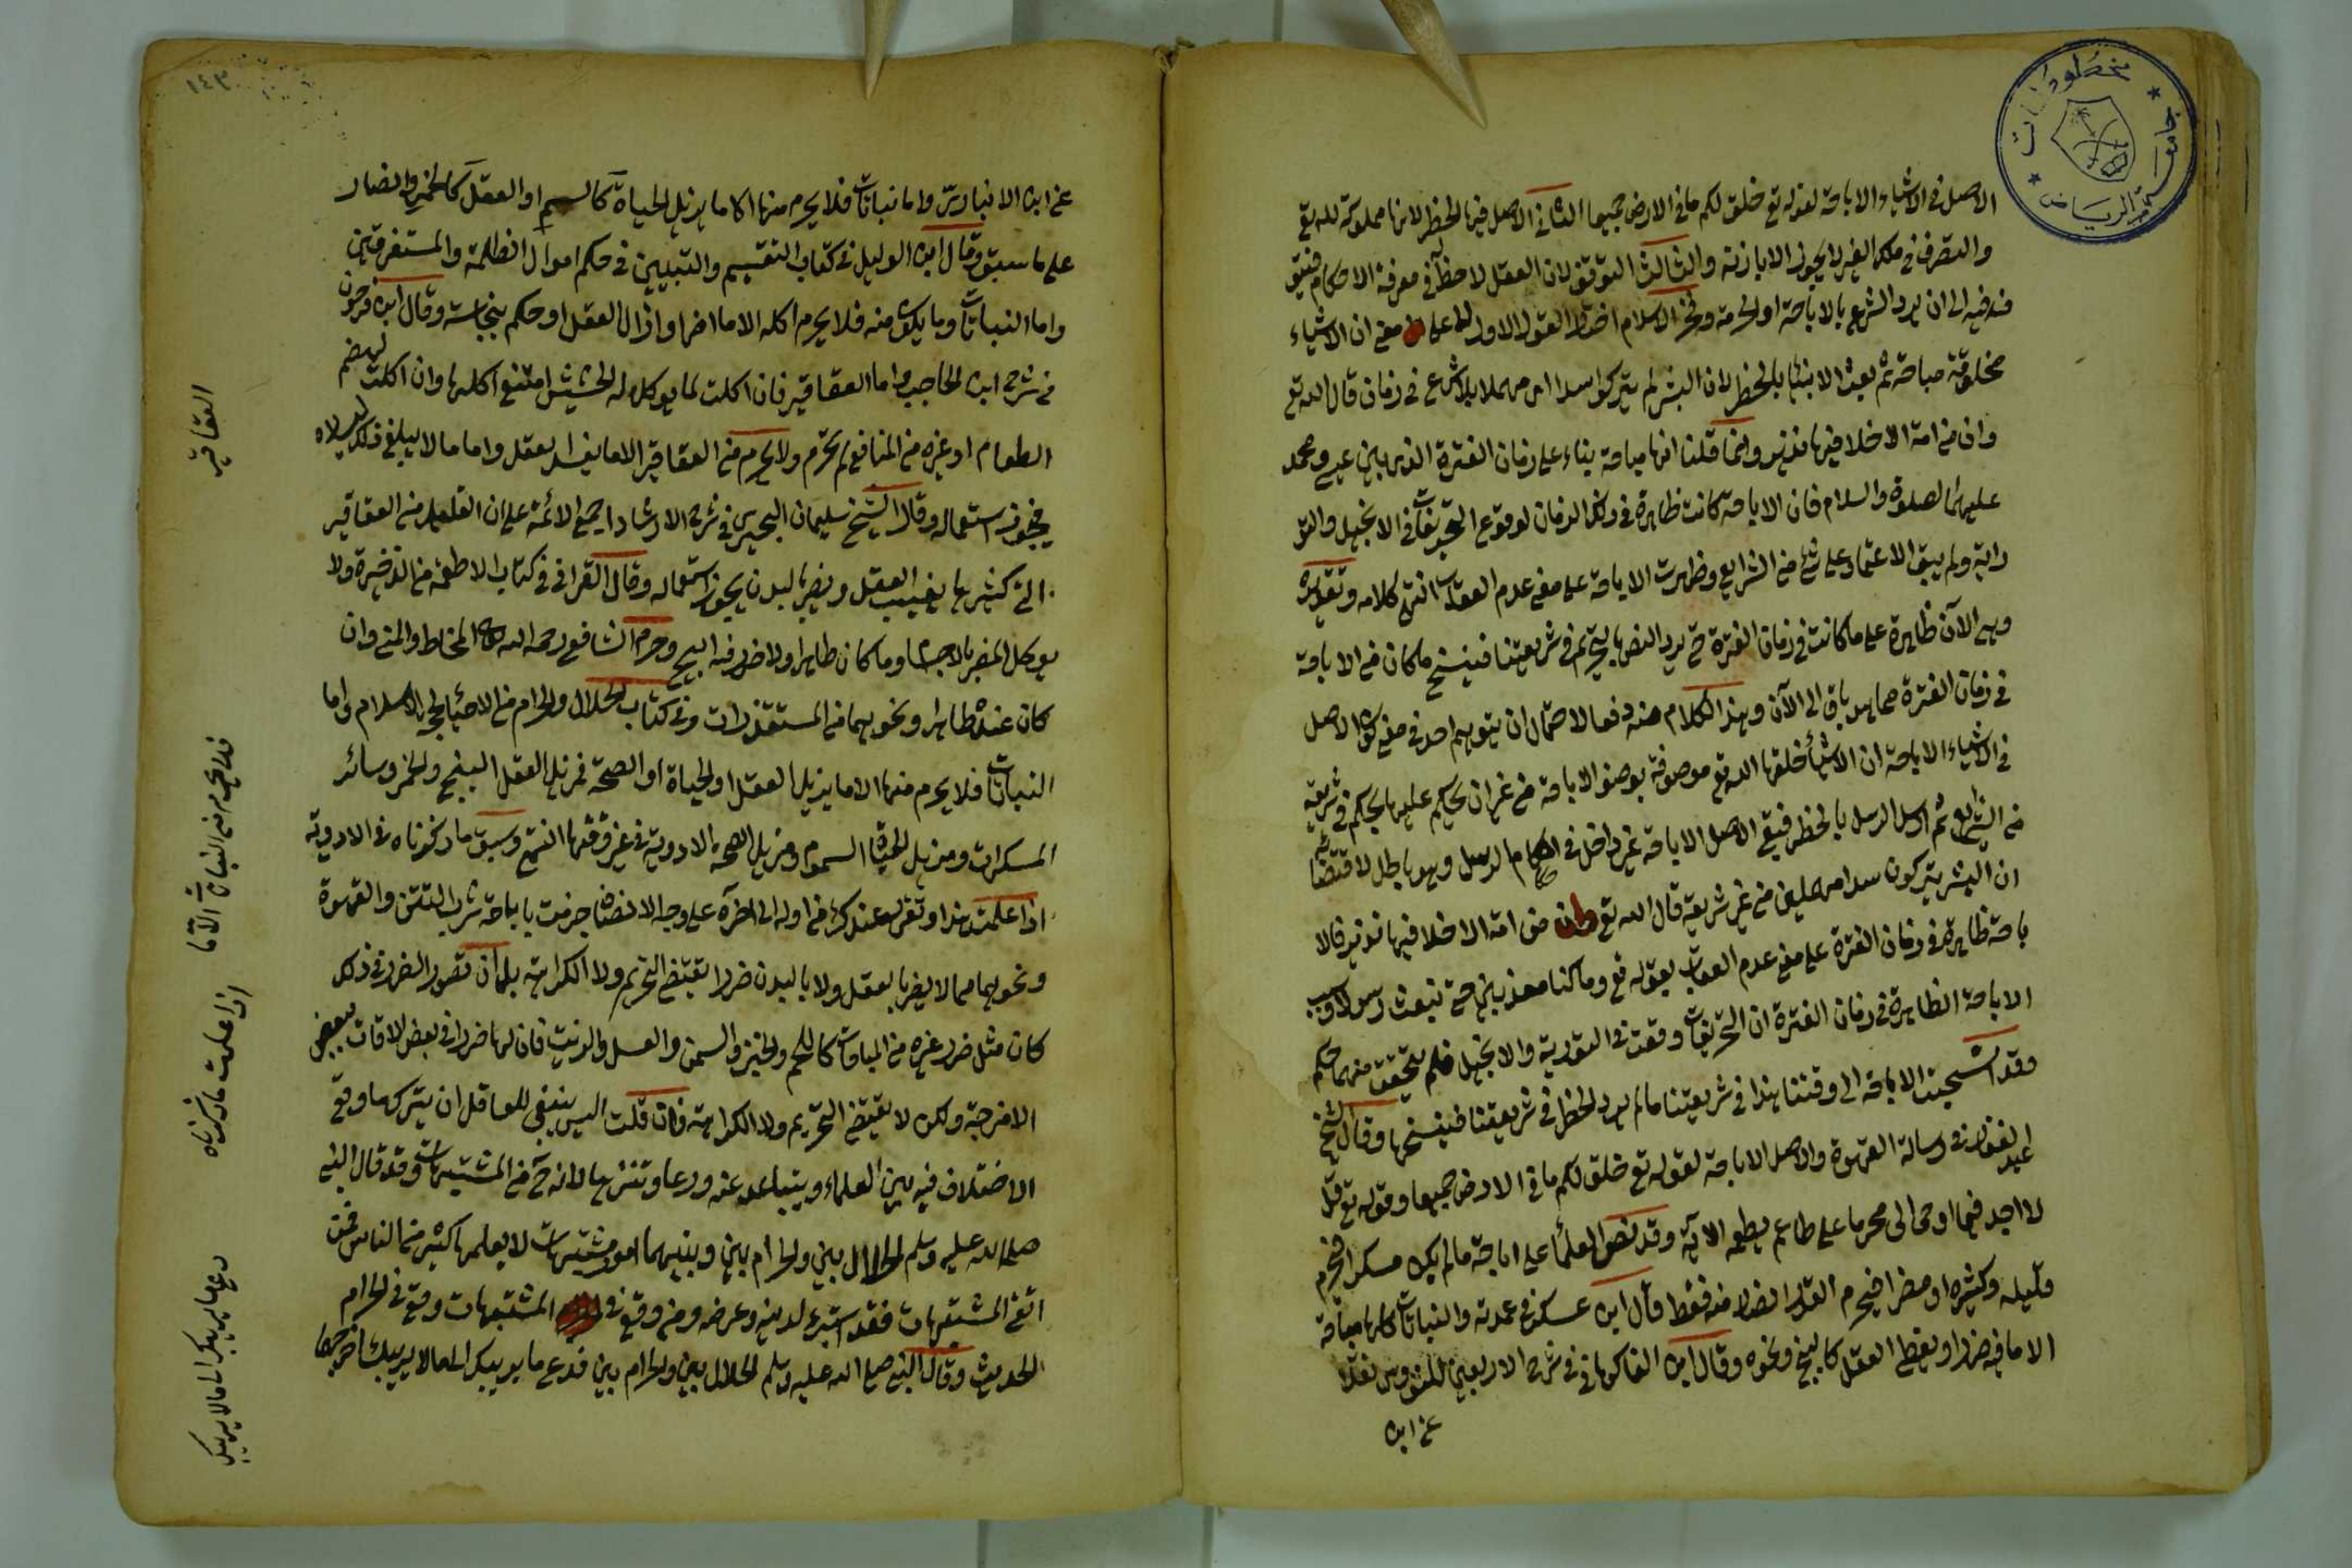 مخطوطات
جامعة الرياض
الاصل في الاشياء الاباحة لقوله تع خلق لكم ما في الارض جميعا الثاني الاصل فيها الحظر لانها مملوكة لله تع
والتصرف في ملك الغير لا يجوز الا باذنه والثالث التوقف لان العقل لا حظ له في معرفة الاحكام فيتوقف
فيه الى ان يرد الشرع بالاباحة او الحرمة وفخر الاسلام اختار القول الاول لا على معنى ان الاشياء
مخلوقة مباحة ثم بعث الانبياء بالحظر لان البشر لم يتركوا سدا اى مهملا بلا شرع في زمان قال الله تع
وان من امة الا خلا فيها نذير وانما قلنا انها مباحة بناء على زمان الفترة الذى بين عيسى ومحمد
عليهما الصلوة والسلام فان الاباحة كانت ظاهرة في ذلك الزمان لوقوع التحريفات في الانجيل والتو
راية ولم يبق الاعتماد على شئ من الشرايع وظهرت الاباحة على معنى عدم العقاب انتهى كلامه وتقريره
وهى الآن ظاهرة على ما كانت في زمان الفترة حتى يرد النص بالتحريم في شريعتنا فينسخ ما كان من الاباحة
في زمان الفترة مما هو باق الى الآن وهذا الكلام منه دفعا لاحتمال ان يتوهم احد في معنى كون الاصل
في الاشياء الاباحة ان الاشياء خلقها الله تع موصوفة بوصف الاباحة من غير ان يحكم عليها بحكم في شريعة
من الشرايع ثم ارسل الرسل بالحظر فبقى الاصل الاباحة غير داخل في احكام الرسل وهو باطل لاقتضائه
ان البشر يتركون سدا مهملين من غير شريعة قال الله تع وان من امة الا خلا فيها نذير فالا
باحة ظاهرة في زمان الفترة على معنى عدم العقاب بقوله تع وما كنا معذبين حتى نبعث رسولا وسبب
الاباحة الظاهرة في زمان الفترة ان التحريفات وقعت في التورية والانجيل فلم يتحقق منهما حكم
وقد انسحبت الاباحة الى وقتنا هذا في شريعتنا ما لم يرد الحظر في شريعتنا فينسخها وقال الشيخ
عبد الغفور في رسالة القهوة والاصل الاباحة لقوله تع خلق لكم ما في الارض جميعا وقوله تع قل
لا اجد فيما اوحى الى محرما على طاعم يطعمه الآية وقد نص العلماء على اباحة ما لم يكن مسكرا فيحرم
قليله وكثيره او مضرا فيحرم القدر المضر منه فقط قال ابن عسكر في عمدته والنباتات كلها مباحة
الا ما فيه ضرر او يغطى العقل كالبنج ونحوه وقال ابن الفاكهانى في شرح الاربعين للنووى نقلا
عن ابن
١٤٣
عن ابن الانبارى واما نباتات فلا يحرم منها الا ما يزيل الحياة كالسم او العقل كالخمر والضار
على ما سبق وقال ابن الوليل في كتاب التقسيم والتبيين في حكم اموال الظلمة والمستغرقين
واما النباتات وما يكون منه فلا يحرم اكله الا ما اضر او ازال العقل او حكم بنجاسته وقال ابن فرحون
في شرح ابن الحاجب واما العقاقير فان اكلت لما يوكل له الحشيش امتنع اكلها وان اكلت لهضم
الطعام او غيره من المنافع لم تحرم ولا يحرم من العقاقير الا ما يفسد العقل واما ما لا يبلغ ذلك
فيجوز استعماله وقال الشيخ سليمان البحيرى في شرح الارشاد اجمع الائمة على ان القليل من العقاقير
التى كثيرها يغيب العقل ويضر البدن يجوز استعماله وقال القرافى في كتاب الاطعمة من الذخيرة ولا
يوكل المضر بالاجسام وما كان طاهرا ولا ضرر فيه ابيح وحرم الشافعى رحمه الله المخاط والمنى وان
كان عنده طاهرا ونحوهما من المستقذرات وفى كتاب الحلال والحرام من الاحياء لحجة الاسلام واما
النباتات فلا يحرم منها الا ما يزيل العقل او الحياة او الصحة فمزيل العقل البنج والخمر وسائر
المسكرات ومزيل الحياة السموم ومزيل الصحة الادوية في غير وقتها انتهى وسبق ما ذكرناه في الادوية
اذا علمت هذا وتقرر عندك من اوله الى آخره على وجه الانصاف جزمت باباحة شرب التتن والقهوة
ونحوهما مما لا يضر بالعقل ولا بالبدن ضررا يقتضى التحريم ولا الكراهة بل ان تصور الضرر في ذلك
كان مثل ضرر غيره من المباحات كاللحم والخبز والسمن والعسل والزيت فان لها ضررا في بعض الاوقات ببعض
الامزجة ولكن لا يقتضى التحريم ولا الكراهة فان قلت اليس ينبغى للعاقل ان يتركهما وقع
الاختلاف فيه بين العلماء ويتباعد عنه ورعا وتنزها لانه من المشتبهات وقد قال النبى
صلى الله عليه وسلم الحلال بين والحرام بين وبينهما امور مشتبهات لا يعلمها كثير من الناس فمن
اتقى المشتبهات فقد استبرء لدينه وعرضه ومن وقع في المشتبهات وقع في الحرام
الحديث وقال النبى صلى الله عليه وسلم الحلال بين والحرام بين فدع ما يريبك الى ما لا يريبك اخرجهما
العقاقير
فلا يحرم من النباتات الا ما
اذا علمت ما ذكرناه
دع ما يريبك الى ما لا يريبك